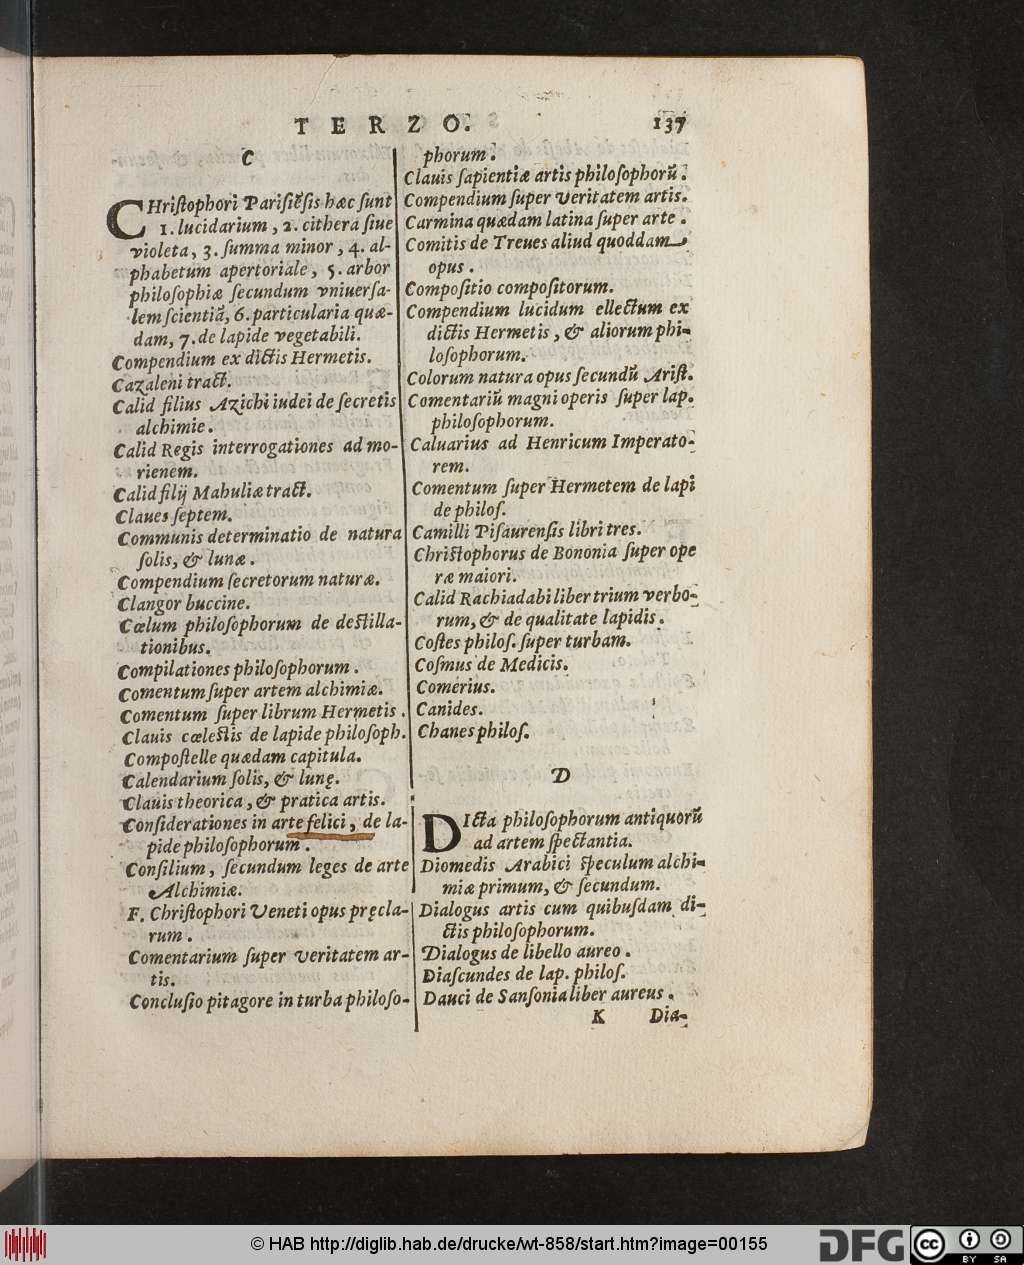 TERZO. 137
C
CHriſtophori Pariſiẽſis hæc ſunt
1. lucidarium, 2. cithera ſiue
violeta, 3. ſumma minor, 4. al-
phabetum apertoriale, 5. arbor
philoſophiæ ſecundum vniuerſa-
lem ſcientiã, 6. particularia quæ-
dam, 7. de lapide vegetabili.
Compendium ex dictis Hermetis.
Cazaleni tract.
Calid filius Azichi iudei de ſecretis
alchimie.
Calid Regis interrogationes ad mo-
rienem.
Calid filij Mahuliæ tract.
Claues ſeptem.
Communis determinatio de natura
ſolis, & lunæ.
Compendium ſecretorum naturæ.
Clangor buccine.
Cœlum philoſophorum de deſtilla-
tionibus.
Compilationes philoſophorum.
Comentum ſuper artem alchimiæ.
Comentum ſuper librum Hermetis.
Clauis cœleſtis de lapide philoſoph.
Compoſtelle quædam capitula.
Calendarium ſolis, & lunę.
Clauis theorica, & pratica artis.
Conſiderationes in arte felici, de la-
pide philoſophorum.
Conſilium, ſecundum leges de arte
Alchimiæ.
F. Chriſtophori Veneti opus pręcla-
rum.
Comentarium ſuper veritatem ar-
tis.
Concluſio pitagore in turba philoſo-
phorum.
Clauis ſapientiæ artis philoſophorũ.
Compendium ſuper veritatem artis.
Carmina quædam latina ſuper arte.
Comitis de Treues aliud quoddam
opus.
Compoſitio compoſitorum.
Compendium lucidum ellectum ex
dictis Hermetis, & aliorum phi-
loſophorum.
Colorum natura opus ſecundũ Ariſt.
Comentariũ magni operis ſuper lap.
philoſophorum.
Caluarius ad Henricum Imperato-
rem.
Comentum ſuper Hermetem de lapi
de philoſ.
Camilli Piſaurenſis libri tres.
Chriſtophorus de Bononia ſuper ope
ræ maiori.
Calid Rachiadabi liber trium verbo-
rum, & de qualitate lapidis.
Coſtes philoſ. ſuper turbam.
Coſmus de Medicis.
Comerius.
Canides.
Chanes philoſ.
D
DIcta philoſophorum antiquorũ
ad artem ſpectantia.
Diomedis Arabici ſpeculum alchi-
miæ primum, & ſecundum.
Dialogus artis cum quibuſdam di-
ctis philoſophorum.
Dialogus de libello aureo.
Diaſcundes de lap. philoſ.
Dauci de Sanſonia liber aureus.
K Dia-
© HAB http://diglib.hab.de/drucke/wt-858/start.htm?image=00155
DFG
cc BY SA